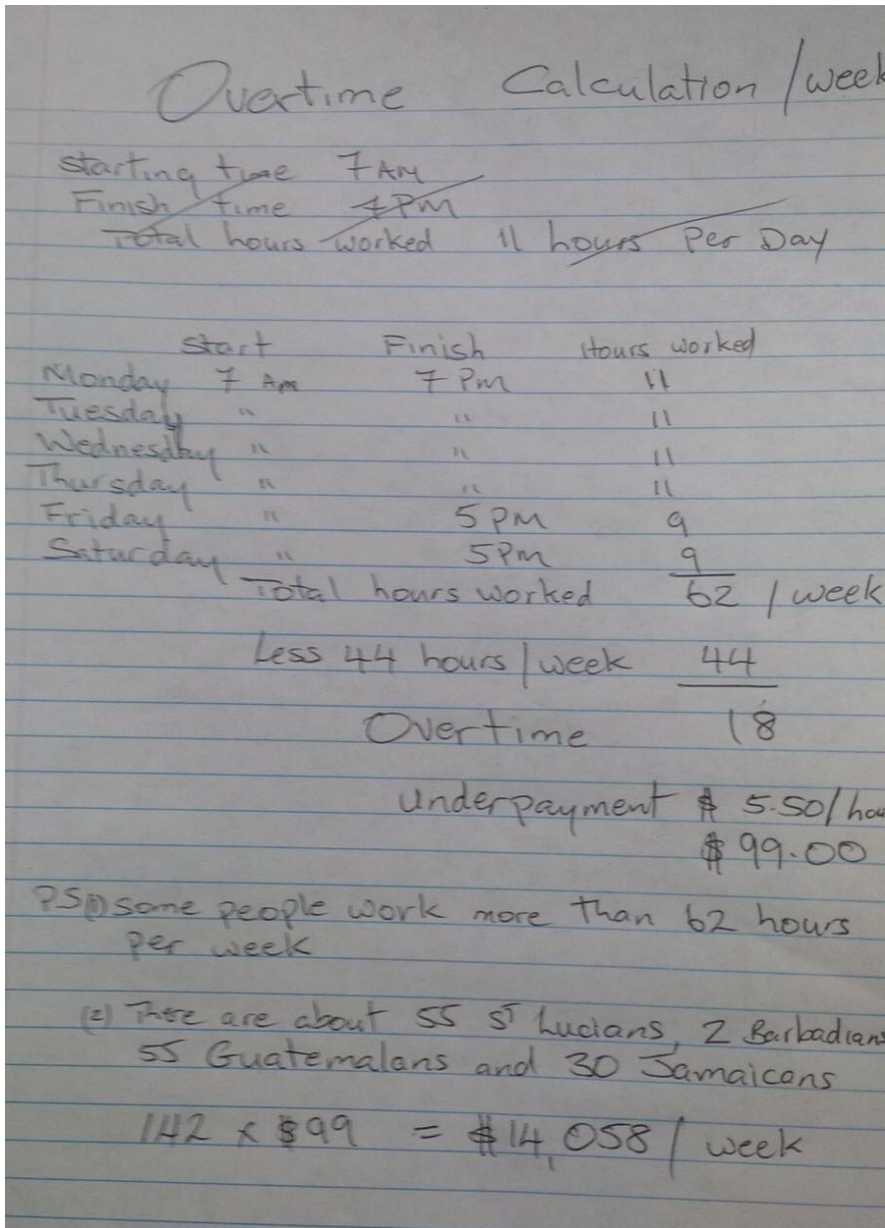 Overtime Calculation / week
Starting time 7 AM
Finish time 7 PM
Total hours worked 11 hours Per Day
Start Finish Hours worked
Monday 7 Am 7 Pm 11
Tuesday " " 11
Wednesday " " 11
Thursday " " 11
Friday " 5 PM 9
Saturday " 5 Pm 9
Total hours worked 62 / week
Less 44 hours / week 44
Overtime 18
Underpayment $ 5.50 / hou
$ 99.00
PS (1) some people work more than 62 hours
per week
(2) There are about 55 ST Lucians, 2 Barbadians
55 Guatemalans and 30 Jamaicans
142 x $99 = $14,058 / week